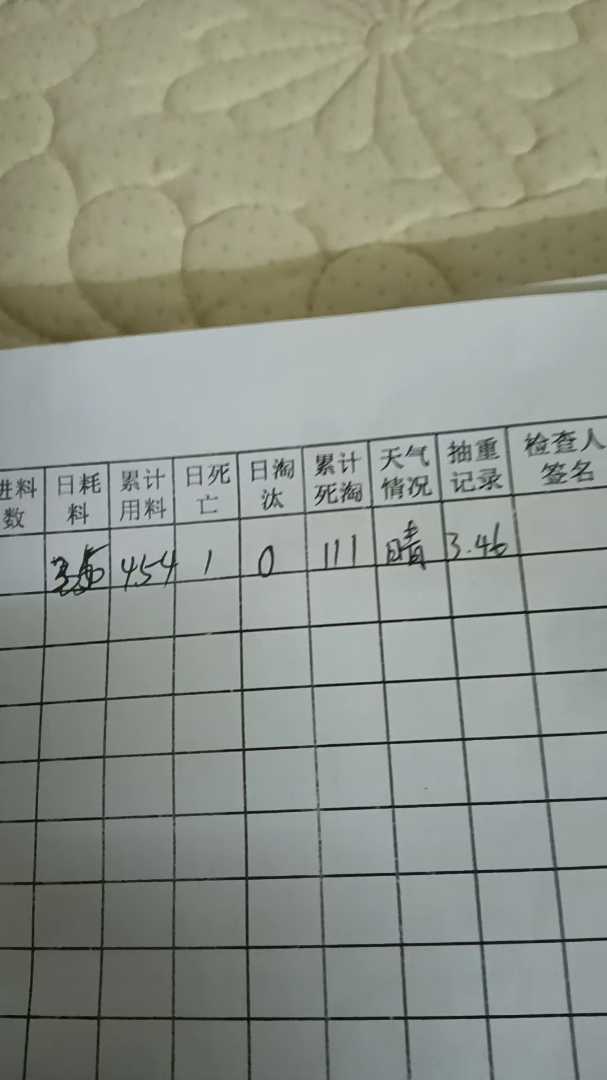 进料数 日耗料 累计用料 日死亡 日淘汰 累计死淘 天气情况 抽重记录 检查人签名
454 1 0 111 晴 3.46